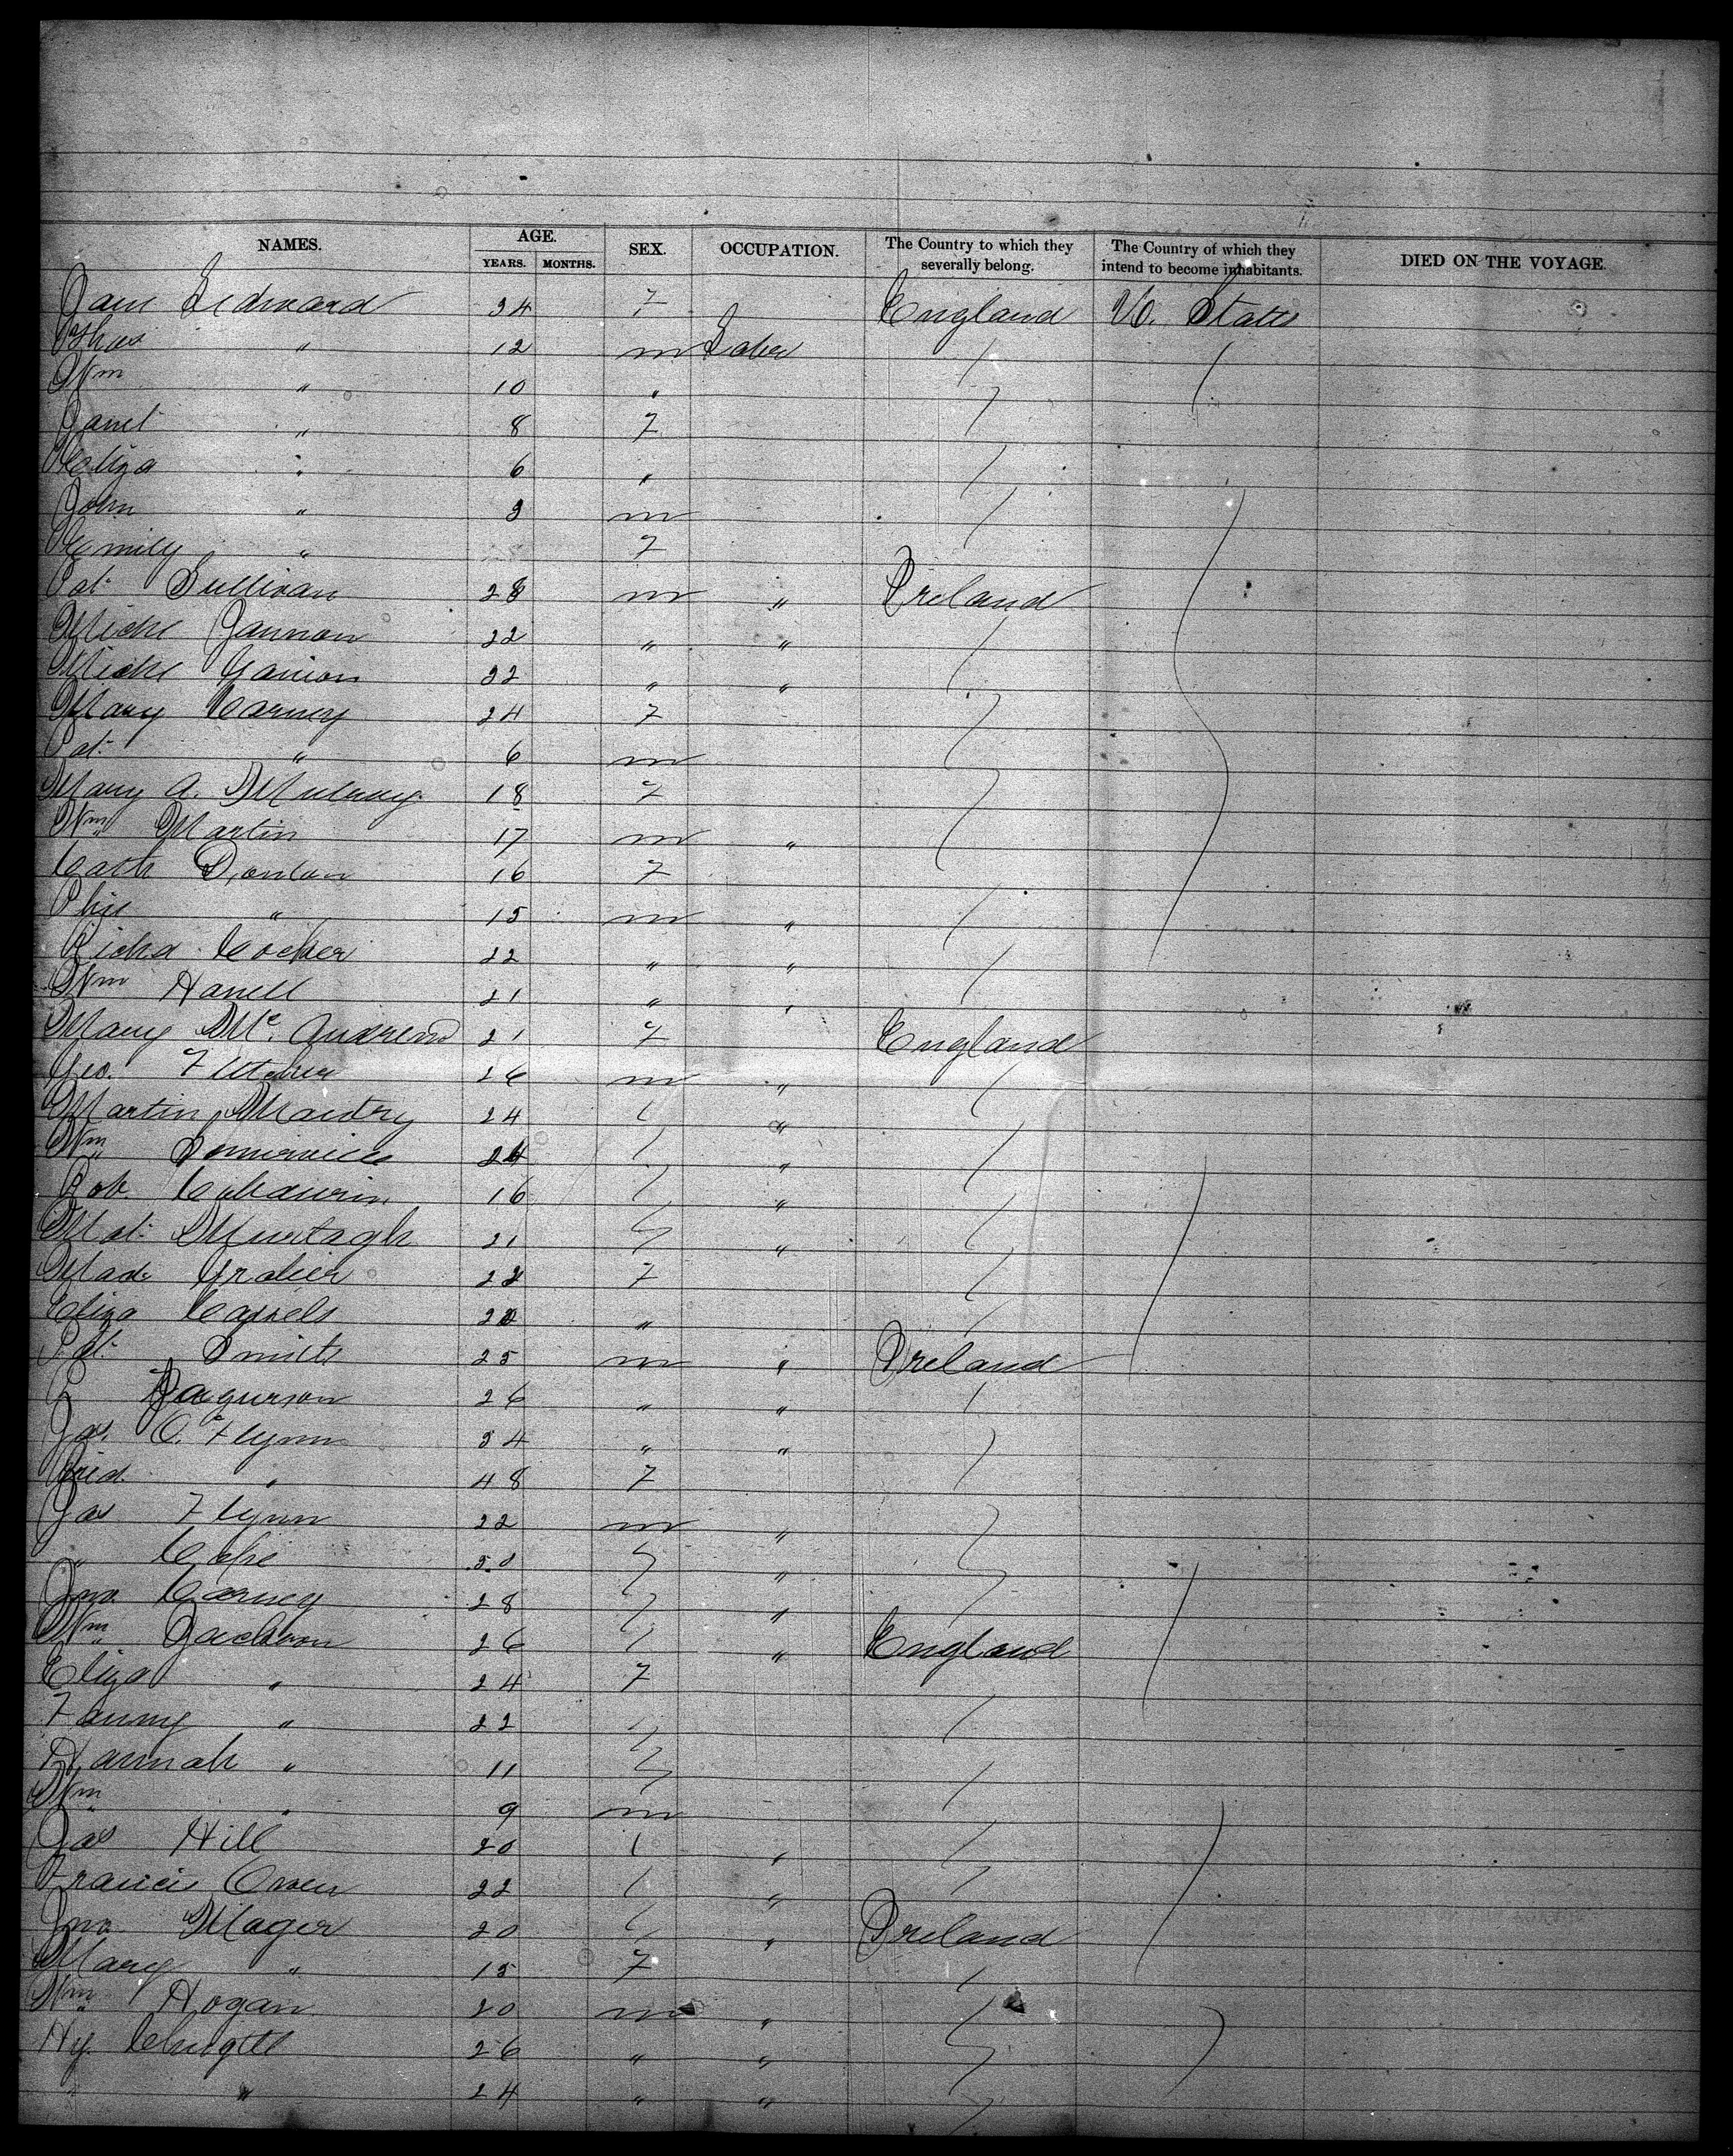 NAMES. AGE. SEX. OCCUPATION. The Country to which they severally belong. The Country of which they intend to become inhabitants. DIED ON THE VOYAGE.
YEARS. MONTHS.
Jane Ledward 34 F England U. States
Thos " 12 m Labr
Wm " 10 "
Janet " 8 F
Eliza " 6 "
John " 3 m
Emily " F
Pat Sullivan 28 m " Ireland
Michl Gannon 22 " "
Michl 22 " "
Mary Carney 24 F
Pat " 6 m
Mary A. 18 F
Wm Martin 17 m "
Cath Donlan 16 F
Phil " 15 m "
Richd Cocker 22 " "
Wm 21 " "
Mary McAndrew 21 F England
Geo. Fletcher 26 m "
Martin 24 "
Wm 24 "
Rob 16 "
Mat Murtagh 21 "
22 F
Eliza 20 "
Pat Smith 25 m " Ireland
26 " "
Jas. O'Flynn 54 " "
Brid. " 48 F
Jas Flynn 22 m "
" 50 "
Jno. Carney 28 "
Wm Jackson 26 " England
Eliza " 24 F
Fanny " 22
Hannah " 11
Wm " 9 m
Jas Hill 20 "
Francis Owen 22 "
Jno. Mager 20 " Ireland
Mary " 15 F
Wm Hogan 20 m "
Hy. 26 " "
" " 24 " "